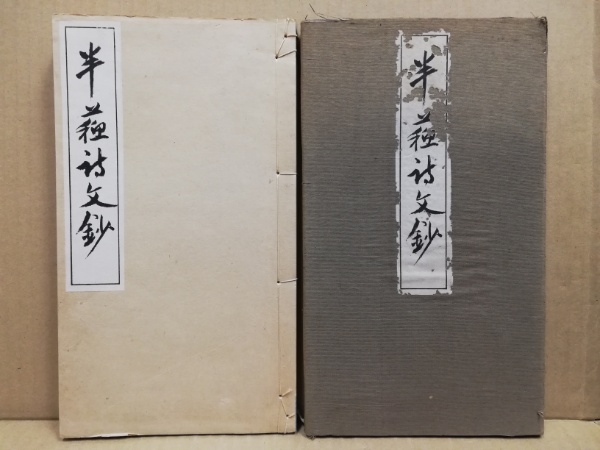 半蘓詩文鈔
半蘓詩文鈔